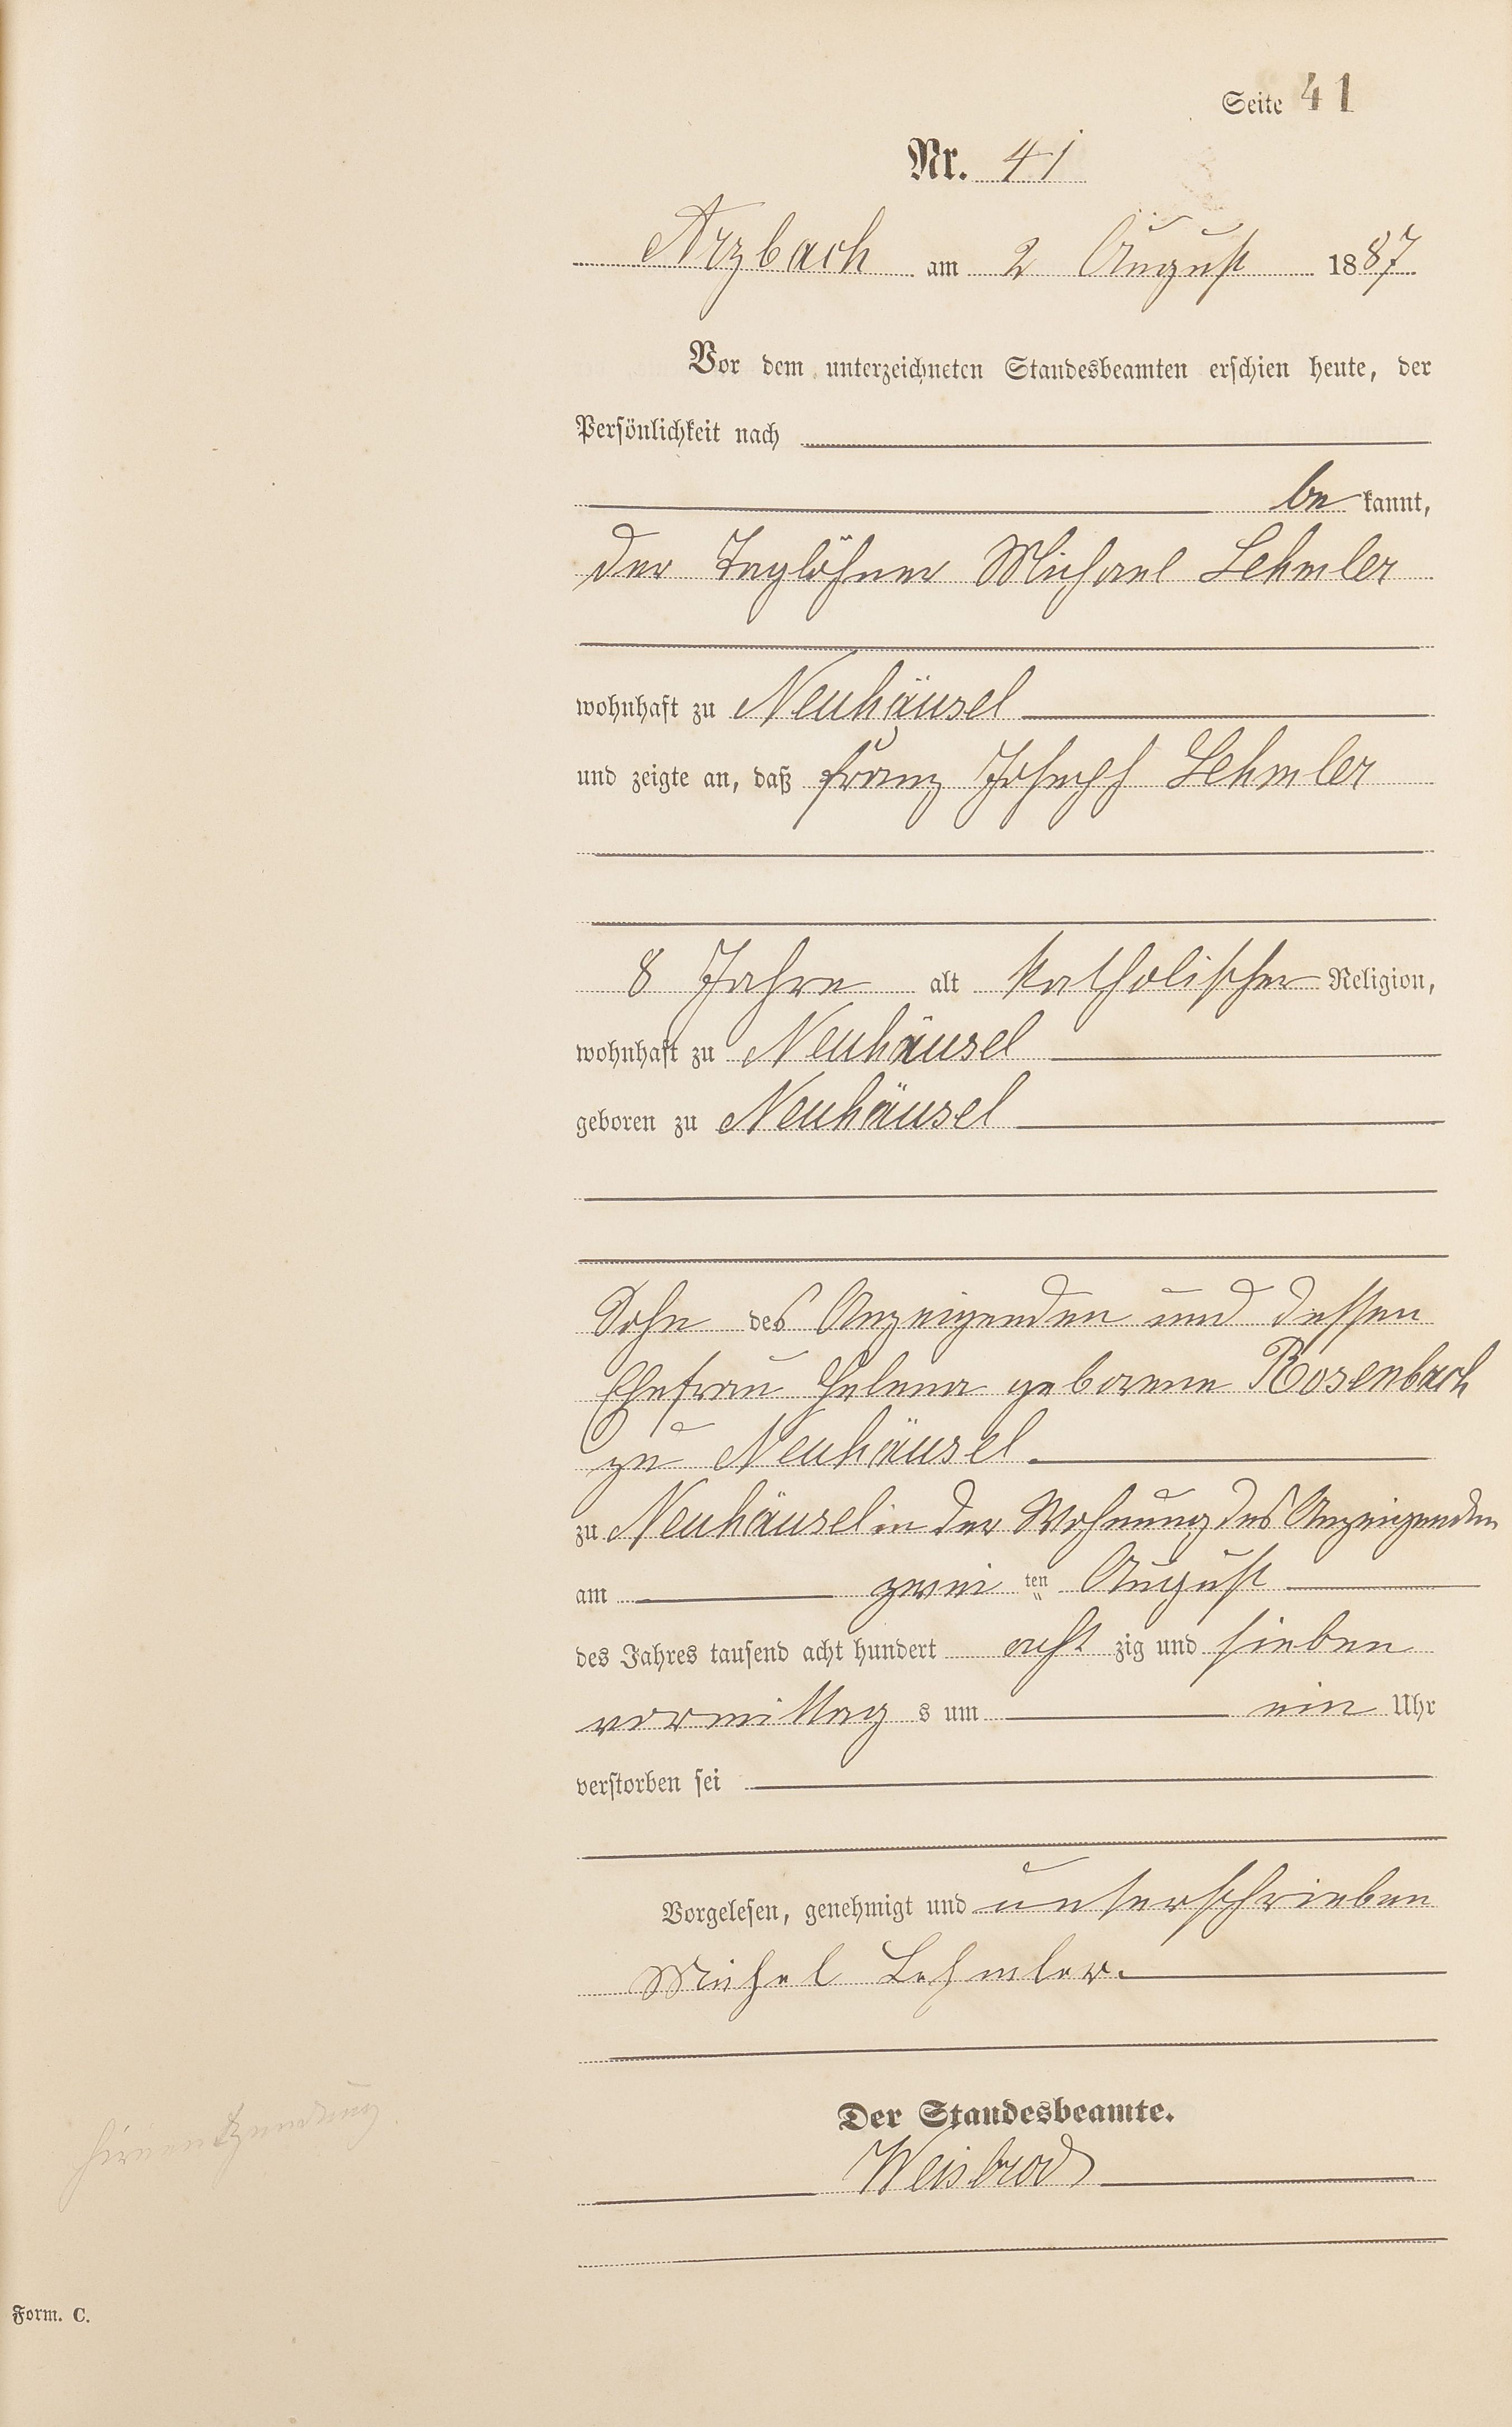 Seite 41
Nr. 41
Arzbach am 2 August 1887
Vor dem unterzeichneten Standesbeamten erschien heute, der
Persönlichkeit nach
be kannt,
der Taglöhner Michael Lehmler
wohnhaft zu Neuhäusel
und zeigte an, daß Franz Joseph Lehmler
8 Jahre alt katholischer Religion,
wohnhaft zu Neuhäusel
geboren zu Neuhäusel
Sohn des Anzeigenden und dessen
Ehefrau Helena geborene Rosenbach
zu Neuhäusel.
zu Neuhäusel in der Wohnung des Anzeigenden
am zwei ten August
des Jahres tausend acht hundert acht zig und sieben
vormittag s um ein Uhr
verstorben sei
Vorgelesen, genehmigt und unterschrieben
Michel Lehmler.
Der Standesbeamte.
Weisbrod
Hirnentzündung
Form. C.